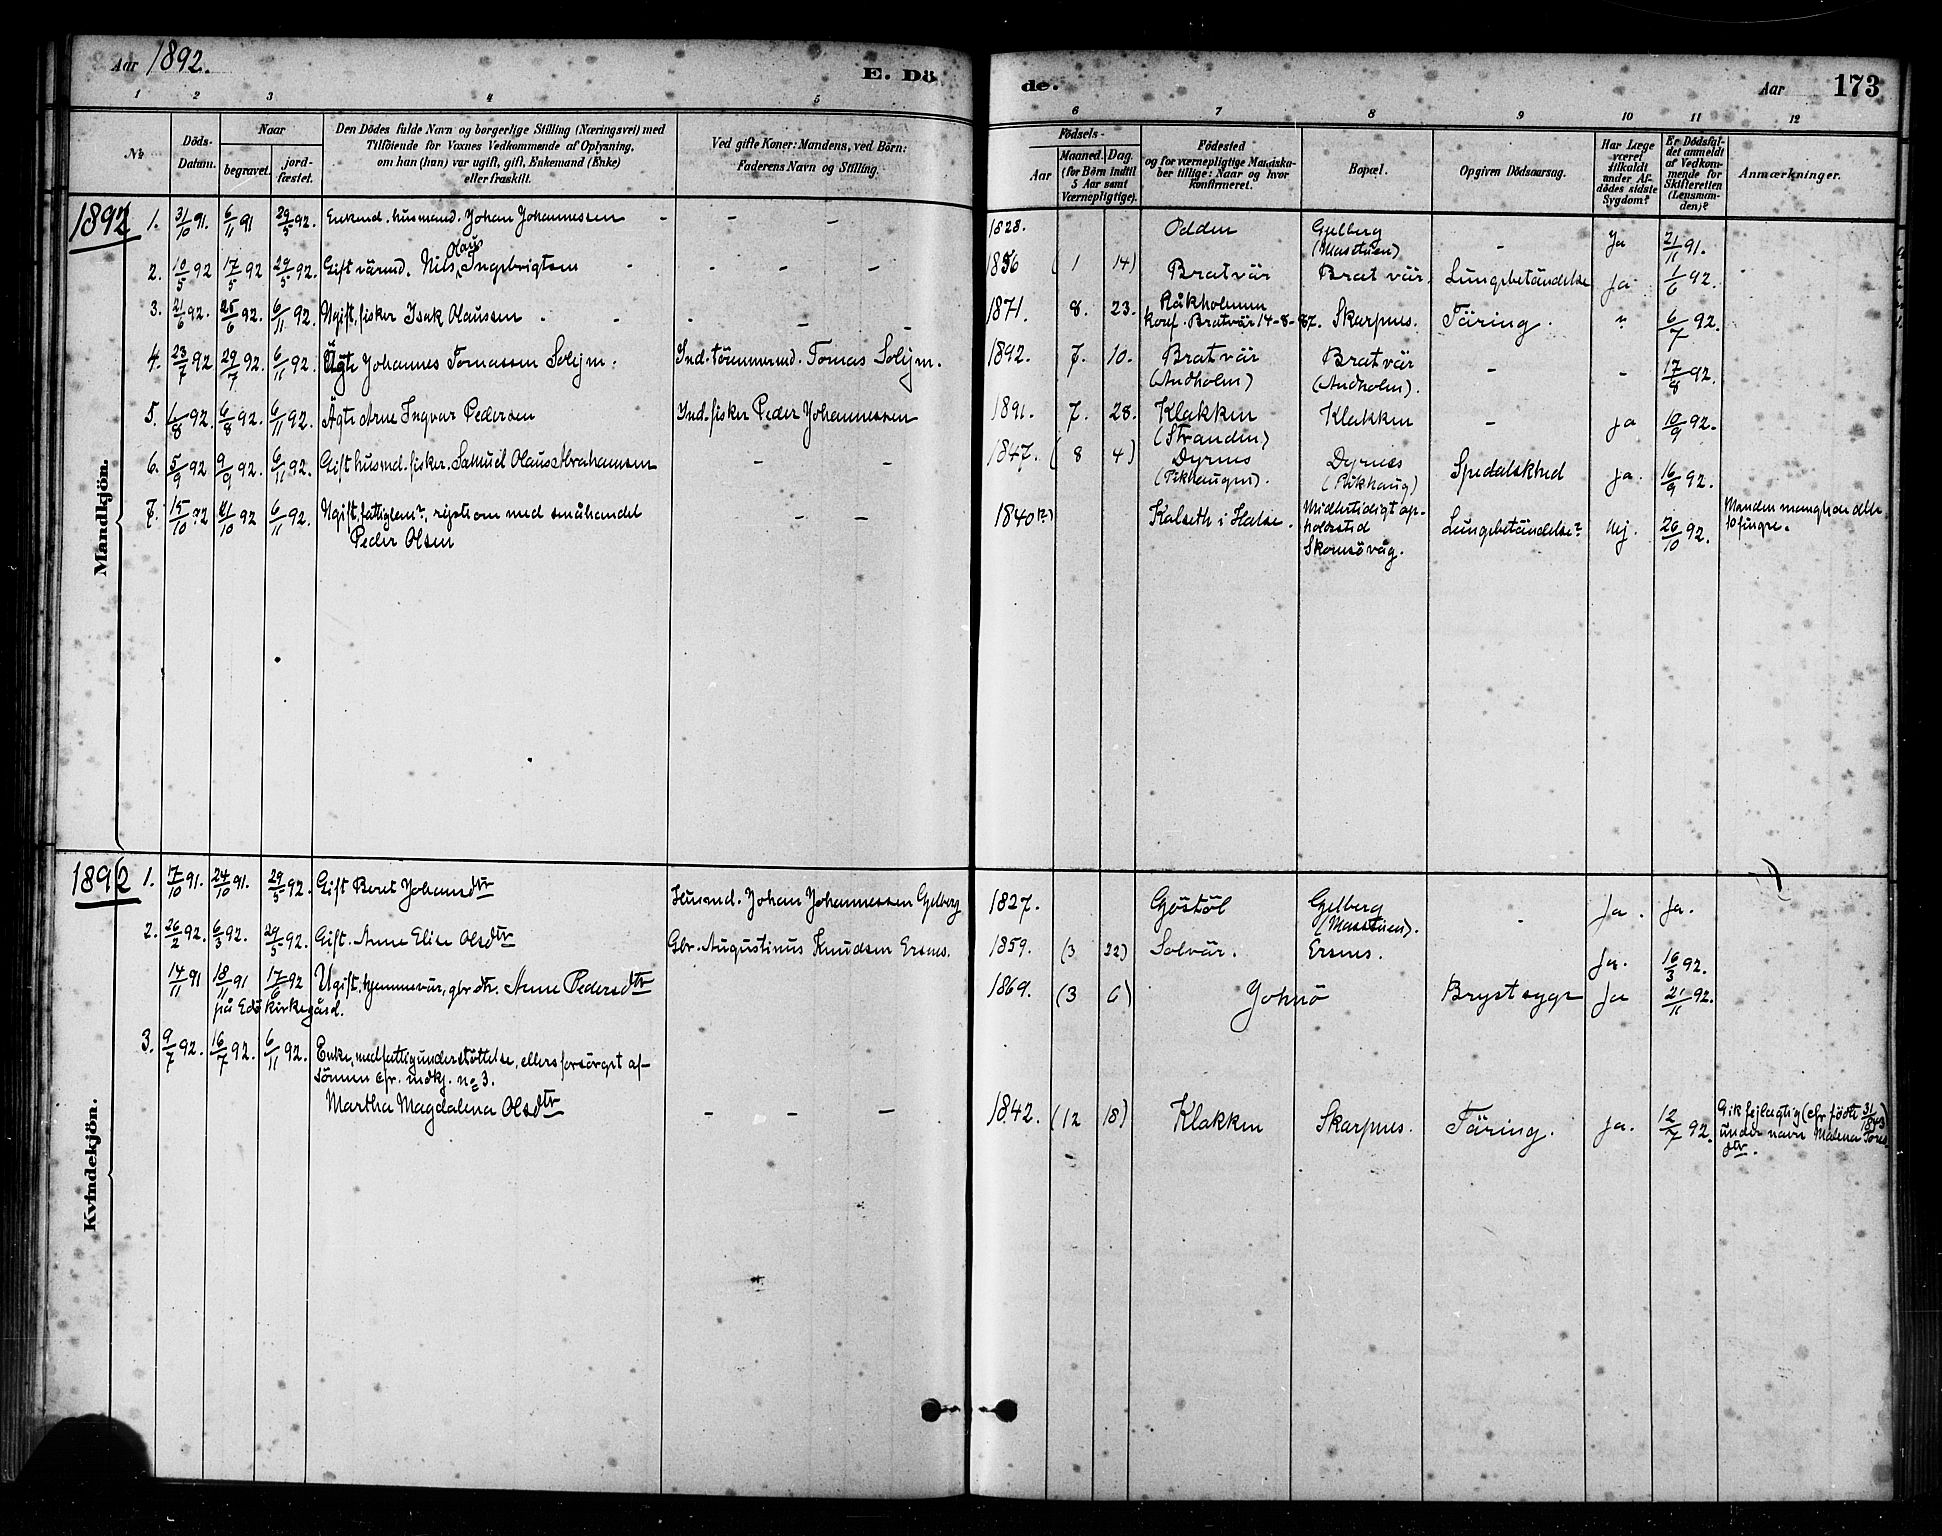 Aar 1892.
E. Dö
de.
Aar
173
1 2 3 4 5 6 7 8 9 10 11 12
No
Döds-Datum.
Naar
begravet.
jordfæstet.
Den Dödes fulde Navn og borgerlige Stilling (Næringsvei) med
Tilföiende for Voxnes Vedkommende af Oplysning,
om han (hun) var ugift, gift, Enkemand (Enke)
eller fraskilt.
Ved gifte Koner: Mandens, ved Börn:
Faderens Navn og Stilling.
Födsels-
Aar
Maaned. Dag.
(for Börn indtil
5 Aar samt
Værnepligtige).
Födested
og for værnepligtige Mandska-
ber tillige: Naar og hvor
konfirmeret.
Bopæl.
Opgiven Dödsaarsag.
Har Læge
været
tilkaldt
under Af-
dödes sidste
Sygdom?
Er Dödsfal-
det anmeldt
af Vedkom-
mende for
Skifteretten
(Lensman-
den)?
Anmærkninger.
Mandkjön.
1892 1. 31/10 91. 6/11 91 29/5 92. Enkemd. husmand. Johan Johannessen - - - 1828. Odden Gjelberg (Mastuen) - Ja 21/11 91.
2. 10/5 92 17/5 92 29/5 92. Gift vårmd. Nils Olaus Ingebrigtsen - - - - 1856 (1 14) Bratvär Bratvär. Lungebetändelse Ja 1/6 92.
3. 21/6 92. 25/6 92. 6/11 92. Ugift, fisker Isak Olaussen - - - 1871. 8. 23. Råkholmen
konf. Bratvär 14-8-87. Skarpnes. Täring. " 6/7 92.
4. 23/7 92 29/7 92. 6/11 92. Ägte Johannes Tomassen Solejm. Ind. tömmermd. Tomas Solejm. 1892. 7. 10. Bratvär (Andholm) Bratvär (Andholm). - - 17/8 92.
5. 1/8 92. 6/8 92. 6/11 92. Ägte Arne Ingvar Pedersen Ind. fisker Peder Johannessen 1891. 7. 28. Klakken (Stranden) Klakken - ja 10/9 92.
6. 5/9 92 9/9 92. 6/11 92. Gift husmd. fisker. Samuel Olaus Abrahamsen - - 1847. (8 4) Dyrnes Dyrnes Spedalskhed ja. 16/9 92.
7. 15/10 92 21/10 92 6/11 92. Ugift, fattiglem?, rejste om med småhandel
Peder Olsen - - 1840 (?) Kalseth i Halse. Midlertidigt op-
holdssted
Lungebetändelse? Nej. 26/10 92. Manden manglede alle
10 fingre.
Kvindekjön.
1892 1. 7/10 91. 24/10 91. 29/5 92. Gift Beret Johansdtr Husmd. Johan Johannessen Gjelberg 1827. Göstöl Gjelberg (Mastuen). - Ja. Ja.
2. 26/2 92. 6/3 92. 29/5 92. Gift. Anne Elise Olsdtr Gbr. Augustinus Knudsen Ersnes. 1859. (3 22) Solvär. Ersnes. Ja. 16/3 92.
14/11 91 18/11 91 17/6 92 Ugift. hjemmevär, gbr dtr. Anne Pedersdtr 1869. (3 6) Johnö Brystsyge Ja 21/11 92.
på Edö kirkegård.
3. 9/7 92. 16/7 92. 6/11 92. Enke, med fattigunderstöttelse, ellers forsörget af
sönnen cfr. mdkj. no 3.
Martha Magdalena Olsdtr - - - 1842. (12 18) Klakken Skarpnes. Täring. Ja. 12/7 92. Gik fejlagtig (cfr födte 31/1843)
under navn Malena Tores
dtr.